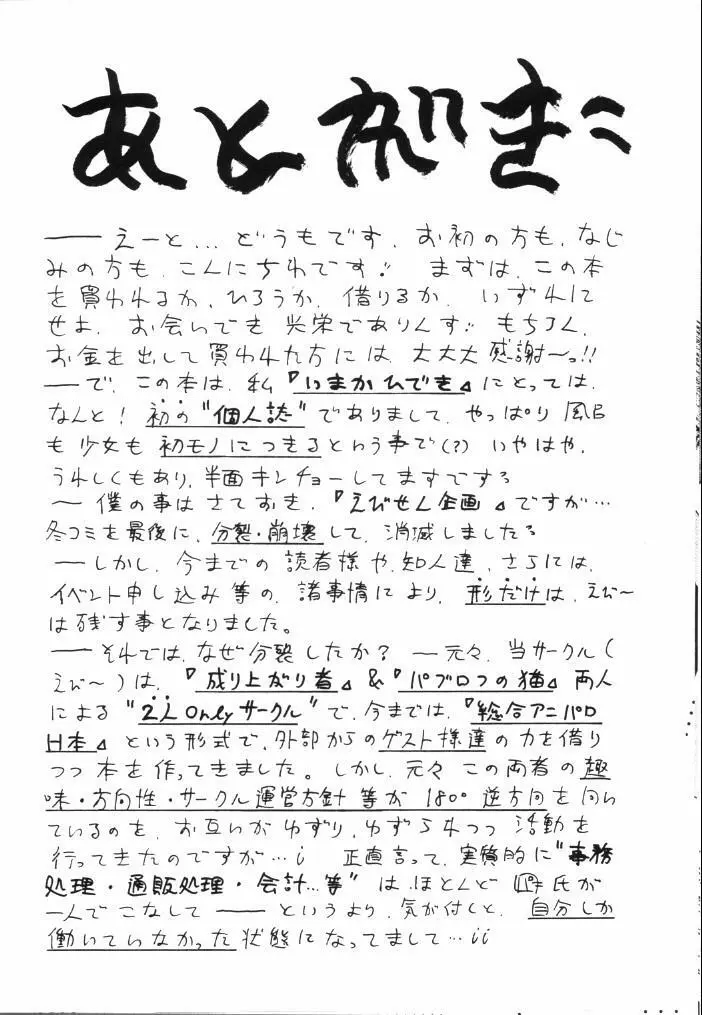 あとがき
── えーと… どうもです. お初の方も. なじ
みの方も. こんにちわです!! まずは. この本
を買われるか. ひろうか. 借りるか. いずれに
せよ. お会いでき 光栄でありんす!! もちろん.
お金を出して買われた方には 大大大感謝〜っ!!
─で. この本は. 私『いまかひでき』にとっては.
なんと! 初の"個人誌"でありまして. やっぱり 風呂
も少女も 初モノにつきるという事で(?) いやはや.
うれしくもあり. 半面キンチョーしてますです。
〜 僕の事は さておき. 『えびせん企画』ですが…
冬コミを最後に. 分裂・崩壊して. 消滅しました。
─しかし. 今までの 読者様や. 知人達. さらには.
イベント申し込み等の. 諸事情により. 形だけは. えび〜
は残す事となりました。
── それでは. なぜ分裂したか? ─元々. 当サークル(
えび〜)は.『成り上がり者』&『パブロフの猫』両人
による "2人Onlyサークル" で. 今までは.『総合アニパロ
H本』という形式で. 外部からのゲスト様達の力を借り
つつ 本を作ってきました。しかし. 元々 この両者の趣
味・方向性・サークル運営方針等が 180° 逆方向を向い
ているのを. お互いが ゆずり. ゆずられつつ 活動を
行ってきたのですが…; 正直言って. 実質的に"事務
処理・通販処理・会計…等" は. ほとんど 氏が
一人でこなして ── というより. 気が付くと. 自分しか
働いていなかった状態になってまして…;;